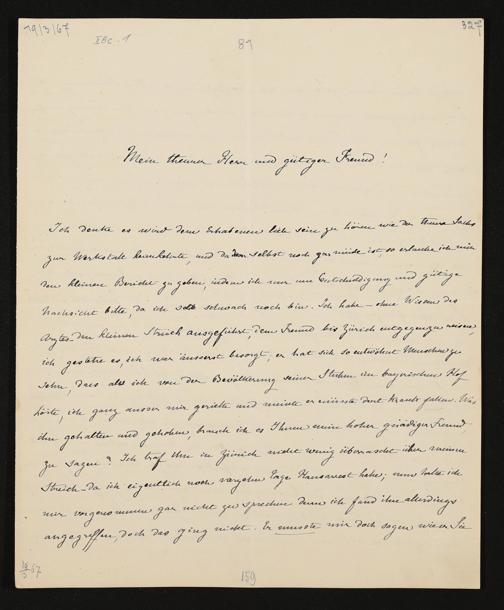 19/3/67
XBc-1
81
327
Mein theurer Herr und gütiger Freund!
Ich denke es wird dem Erhabenen lieb sein zu hören wie der theure Sachs
zur Werkstatt heimkehrte, und da dem selbst noch gar müde ist, so erlaube ich mir
den kleinen Bericht zu geben, indem ich nur um Entschuldigung und gütige
Nachsicht bitte da ich sehr schwach noch bin. Ich habe – ohne Wissen des
Arztes den kleinen Streich ausgeführt, dem Freund bis Zürich entgegenzureisen,
ich gestehe es, ich war äusserst besorgt, er hat sich so entwöhnt Menschen zu
sehen, dass als ich von der Bevölkerung seiner Stuben im bayrischen Hof
hörte, ich ganz ausser mir gerieth und meinte er müsste dort krank fallen. Was
ihn gehalten und gehoben, brauch ich es Ihnen mein hoher gnädiger Freund
zu sagen? Ich traf ihn in Zürich nicht wenig überrascht über meinen
Streich – da ich eigentlich noch vierzehn Tage Hausarrest habe; nun hatte ich
mir vorgenommen gar nicht zu sprechen denn ich fand ihn allerdings
angegriffen, doch das ging nicht. Er musste mir doch sagen wie er Sie
159